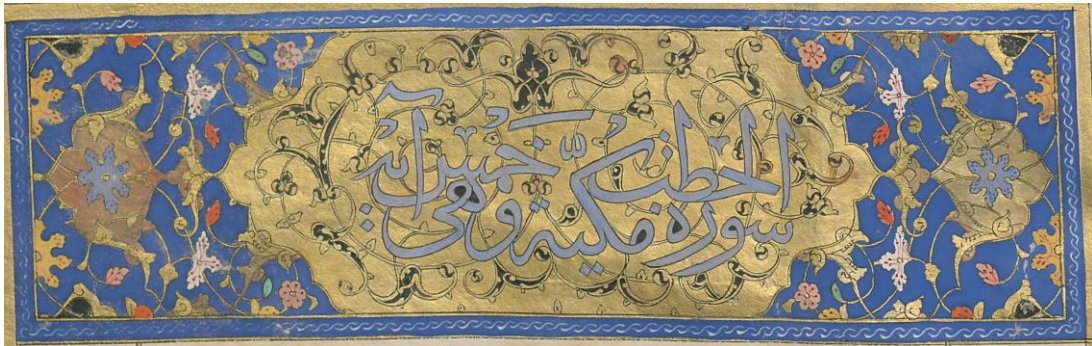 سورة الحطب مكية وهى خمس آية